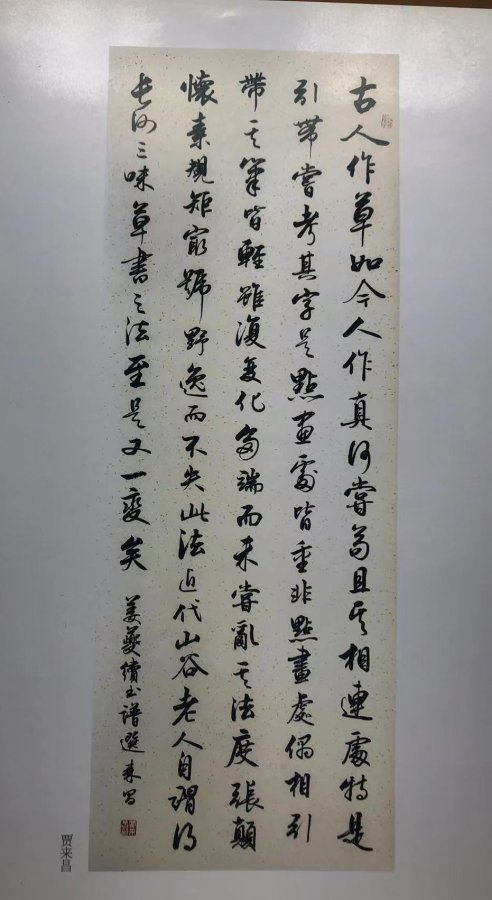 古人作草如今人作真何嘗苟且其相連處特是
引帶嘗考其字是點畫處皆重非點畫處偶相引
帶其筆皆輕雖復變化多端而未嘗亂其法度張顛
懷素規矩最號野逸而不失此法近代山谷老人自謂得
長沙三味草書之法至是又一變矣
姜夔續書譜選 来昌
贾来昌